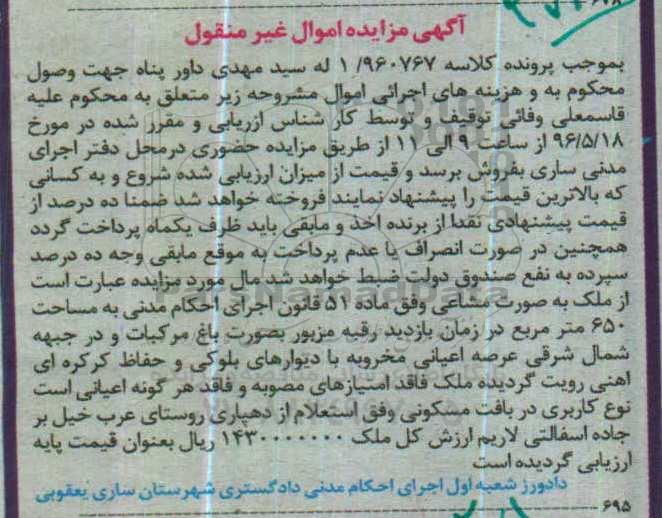 آگهی مزایده اموال غیر منقول
بموجب پرونده کلاسه ۱/۹۶۰۷۶۷ له سید مهدی داور پناه جهت وصول
محکوم به و هزینه های اجرائی اموال مشروحه زیر متعلق به محکوم علیه
قاسمعلی وفائی توقیف و توسط کار شناس ازریابی و مقرر شده در مورخ
۹۶/۵/۱۸ از ساعت ۹ الی ۱۱ از طریق مزایده حضوری درمحل دفتر اجرای
مدنی ساری بفروش برسد و قیمت از میزان ارزیابی شده شروع و به کسانی
که بالاترین قیمت را پیشنهاد نمایند فروخته خواهد شد ضمنا ده درصد از
قیمت پیشنهادی نقدا از برنده اخذ و مابقی باید ظرف یکماه پرداخت گردد
همچنین در صورت انصراف یا عدم پرداخت به موقع مابقی وجه ده درصد
سپرده به نفع صندوق دولت ضبط خواهد شد مال مورد مزایده عبارت است
از ملک به صورت مشاعی وفق ماده ۵۱ قانون اجرای احکام مدنی به مساحت
۶۵۰ متر مربع در زمان بازدید رقبه مزبور بصورت باغ مرکبات و در جبهه
شمال شرقی عرصه اعیانی مخروبه با دیوارهای بلوکی و حفاظ کرکره ای
اهنی رویت گردیده ملک فاقد امتیازهای مصوبه و فاقد هر گونه اعیانی است
نوع کاربری در بافت مسکونی وفق استعلام از دهیاری روستای عرب خیل بر
جاده اسفالتی لاریم ارزش کل ملک ۱۴۳۰۰۰۰۰۰۰ ریال بعنوان قیمت پایه
ارزیابی گردیده است
دادورز شعبه اول اجرای احکام مدنی دادگستری شهرستان ساری یعقوبی
۶۹۵